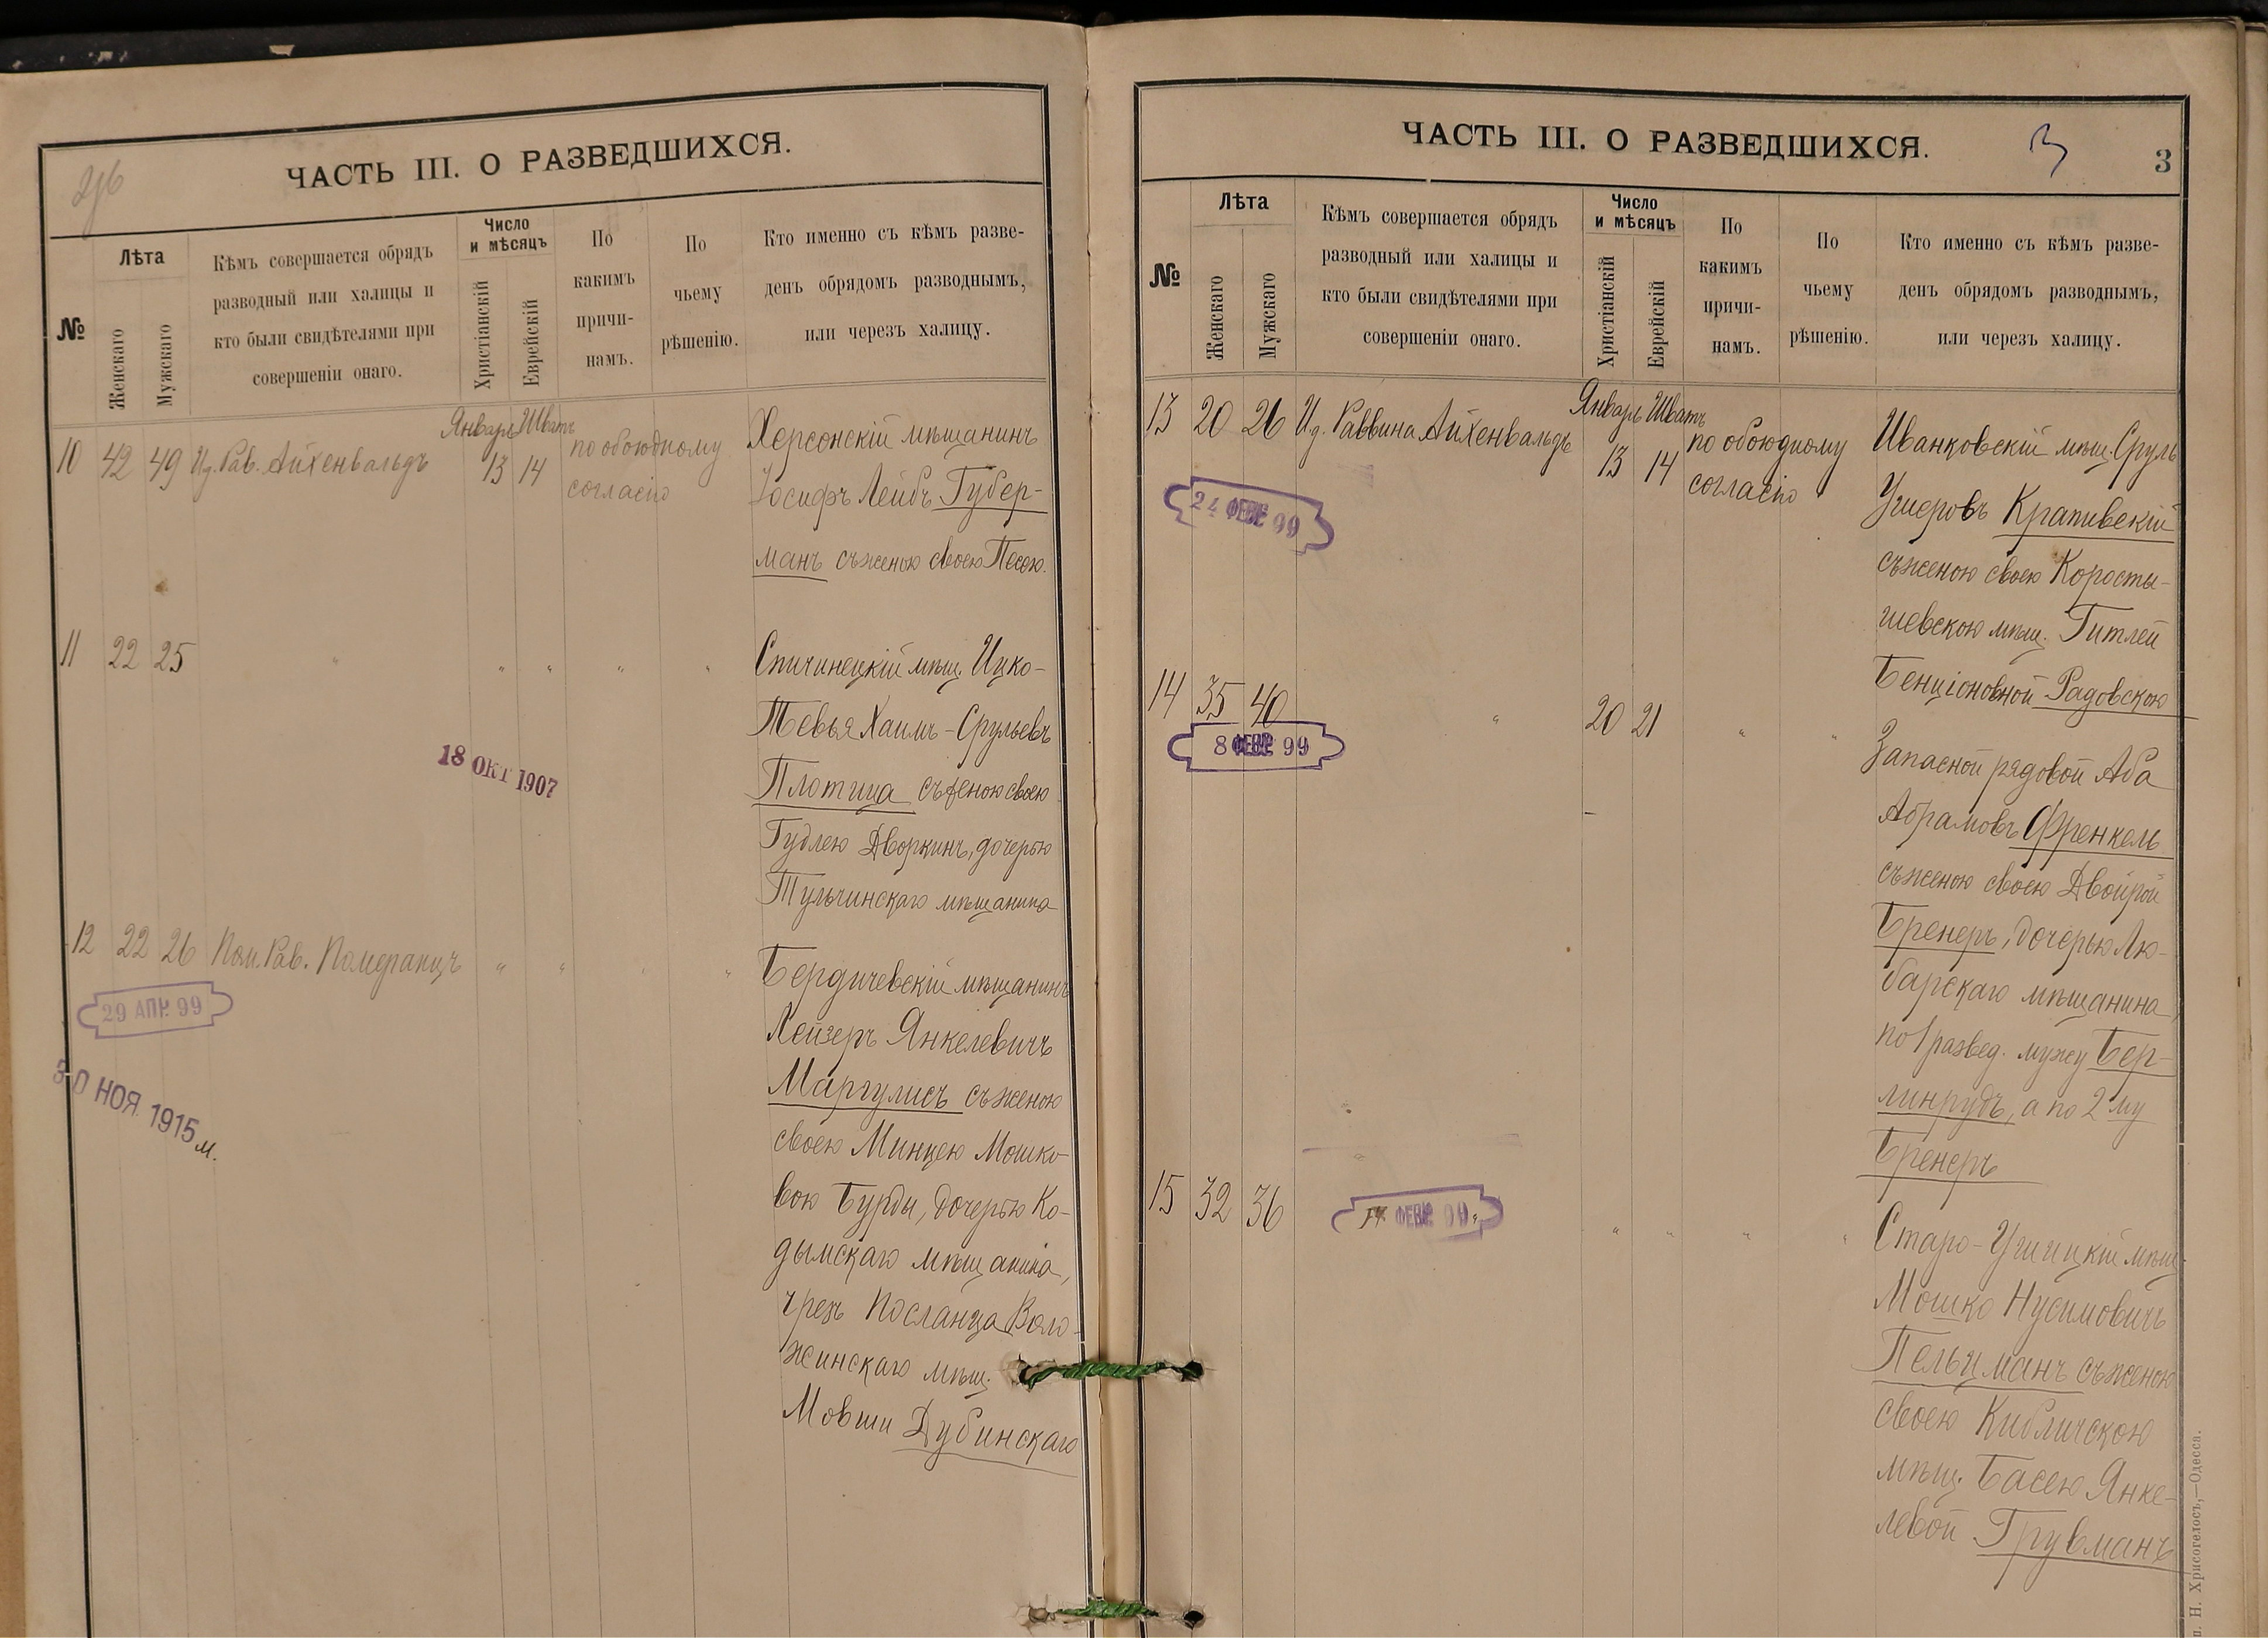 ЧАСТЬ III. О РАЗВЕДШИХСЯ.
№
Лѣта
Женскаго
Мужскаго
Кѣмъ совершается обрядъ
разводный или халицы и
кто были свидѣтелями при
совершеніи онаго.
Число
и мѣсяцъ
Христіанскій
Еврейскій
По
какимъ
причи-
намъ.
По
чьему
рѣшенію.
Кто именно съ кѣмъ разве-
денъ обрядомъ разводнымъ,
или черезъ халицу.
Январь Шватъ
10 42 49 И.д. Рав. Айхенвальдъ 13 14
по обоюдному
согласію
Херсонскій мѣщанинъ
Іосифъ Лейбъ Губер-
манъ съ женою своею Песею.
11 22 25 " " " " "
Спичинецкій мѣщ. Ицко-
Тевья Хаимъ-Срульевъ
Плотица съ женою своею
Гудлею Дворкинъ, дочерью
Тульчинскаго мѣщанина
18 ОКТ 1907
12 22 26 Пом. Рав. Померанцъ " " " "
29 АПР. 99
30 НОЯ 1915 м.
Бердичевскій мѣщанинъ
Лейзеръ Янкелевичъ
Маргулисъ съ женою
своею Минцею Мошко-
вою Бурды, дочерью Ко-
дымскаго мѣщанина,
чрезъ посланца Воло-
жинскаго мѣщ.
Мовши Дубинскаго
ЧАСТЬ III. О РАЗВЕДШИХСЯ.
3
3
№
Лѣта
Женскаго
Мужскаго
Кѣмъ совершается обрядъ
разводный или халицы и
кто были свидѣтелями при
совершеніи онаго.
Число
и мѣсяцъ
Христіанскій
Еврейскій
По
какимъ
причи-
намъ.
По
чьему
рѣшенію.
Кто именно съ кѣмъ разве-
денъ обрядомъ разводнымъ,
или черезъ халицу.
Январь Шватъ
13 20 26 И.д. Раввина Айхенвальдъ 13 14
по обоюдному
согласію
24 ФЕВР. 99
Иванковскій мѣщ. Сруль
Ушеровъ Крапивскій
съ женою своею Коросты-
шевскою мѣщ. Гитлей
Бенціоновной Радовскою
14 35 40 " 20 21 " "
8 ФЕВР. 99
Запасной рядовой Аба
Абрамовъ Френкель
съ женою своею Двойрой
Бренеръ, дочерью Лю-
барскаго мѣщанина,
по 1 развед. мужу Бер-
линрудъ, а по 2 му
Бренеръ
15 32 36 " " " " "
ФЕВР. 99
Старо-Ушицкій мѣщ.
Мошко Нусимовичъ
Пельцманъ съ женою
своею Кибличскою
мѣщ. Басею Янке-
левой Грувманъ
Н. Хрисогелосъ,—Одесса.